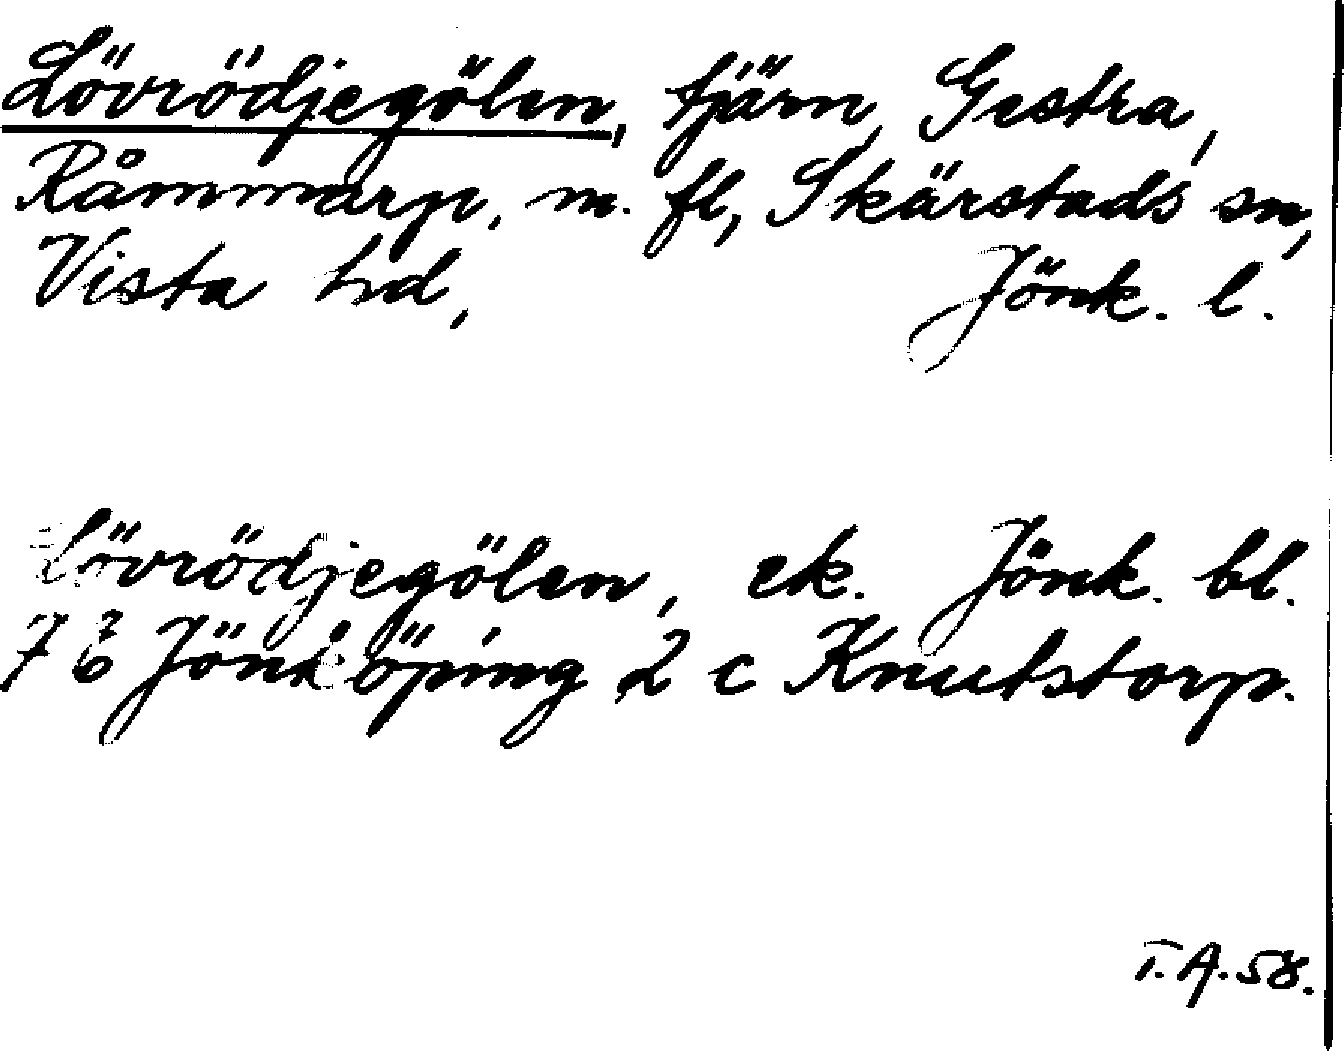 Lövrödjegölen, tjärn, Gistra,
Råmmarp, m. fl, Skärstads sn,
Vista hd, Jönk. l.
Lövrödjegölen, ek. Jönk. bl.
76 Jönköping 2 c Knutstorp.
T.A.58.